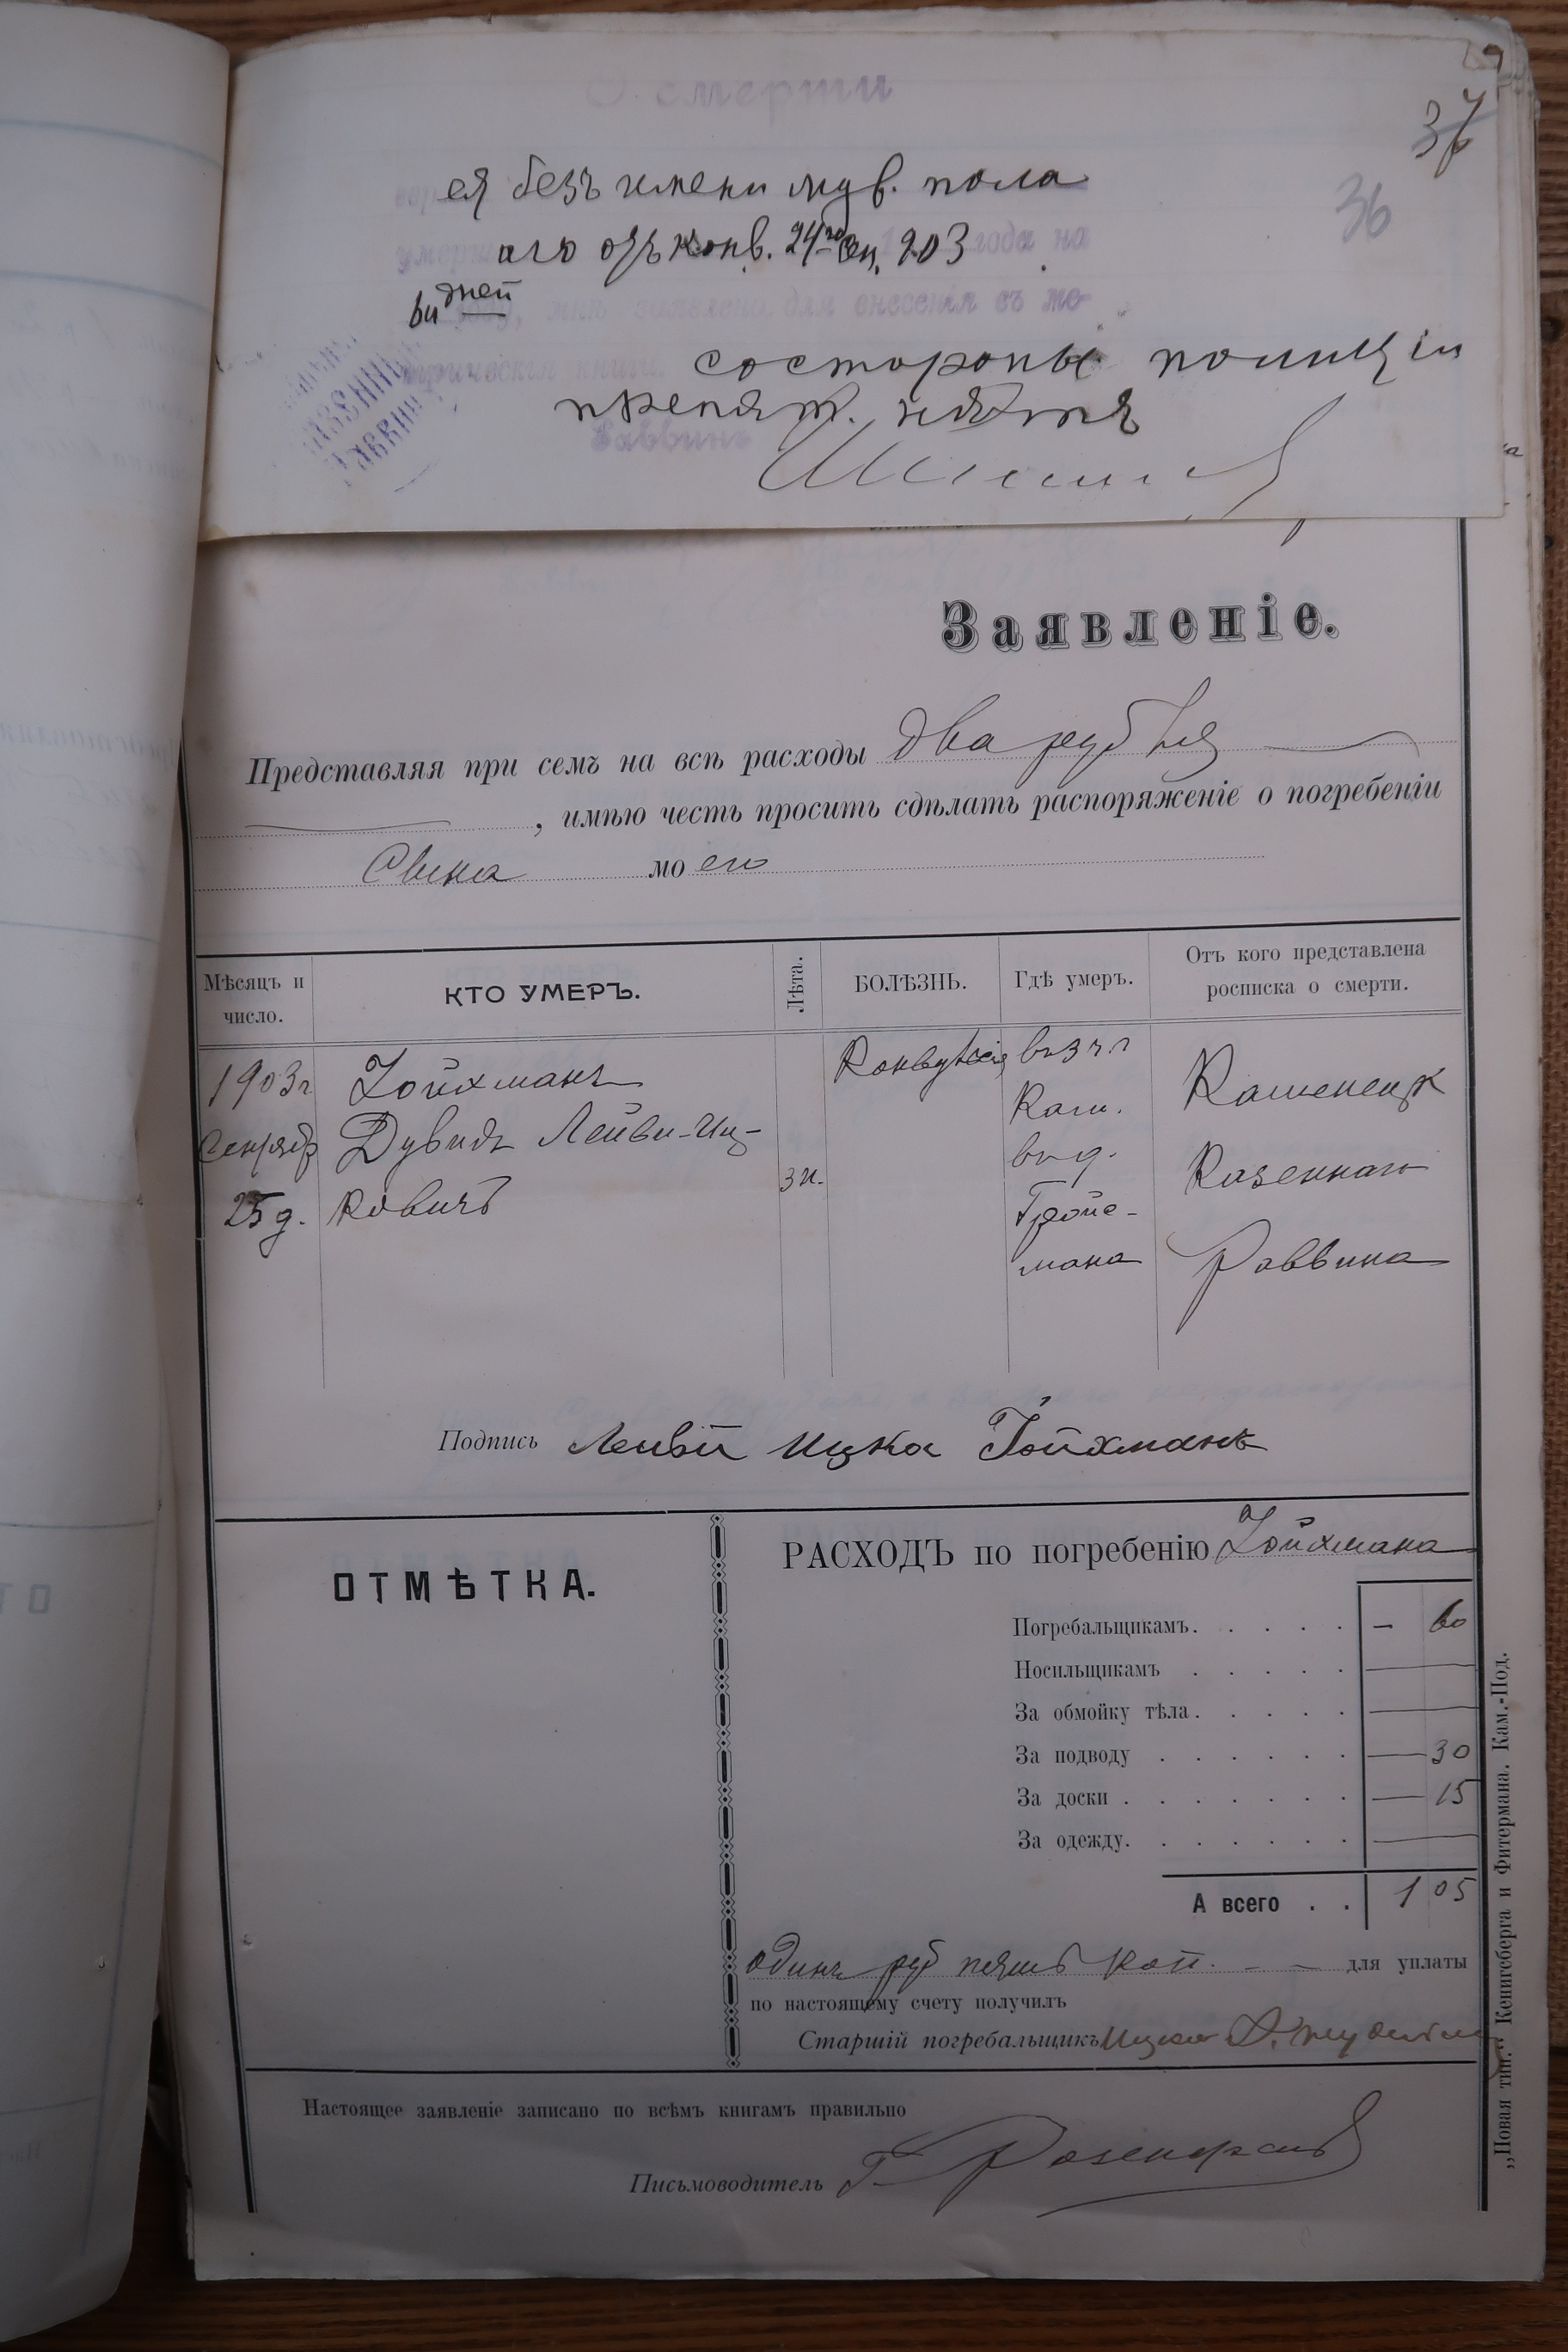 О смерти
37
36
ея безъ имени муж. пола
аго отъ конв. 24го Сен. 903 года на
дней
заявлено для внесенія въ ме-
трическія книги.
со стороны полиціи
препят. нѣтъ
Раввинъ
Заявленіе.
Представляя при семъ на всѣ расходы два рубля
, имѣю честь просить сдѣлать распоряженіе о погребеніи
Сына моего
Мѣсяцъ и число.
КТО УМЕРЪ.
Лѣта.
БОЛѢЗНЬ.
Гдѣ умеръ.
Отъ кого представлена росписка о смерти.
1903 г.
Сентября
25 д.
Гойхманъ
Дувидъ Лейви-Иц-
ковичъ
3 н.
Конвульсія
въ 3 ч. г.
Кам.
въ д.
Гройс-
мана
Каменецк
Казеннаго
Раввина
Подпись Лейви Ицко Гойхманъ
ОТМѢТКА.
РАСХОДЪ по погребенію Гойхмана
Погребальщикамъ. . . . . — 60
Носильщикамъ . . . . . —
За обмойку тѣла. . . . . —
За подводу . . . . . . — 30
За доски . . . . . . . — 15
За одежду. . . . . . . —
А всего . . 1 05
одинъ руб пять коп. — — для уплаты
по настоящему счету получилъ
Старшій погребальщикъ Ицко
Настоящее заявленіе записано по всѣмъ книгамъ правильно
Письмоводитель Г.
„Новая тип.“ Кенигсберга и Фитермана. Кам.-Под.